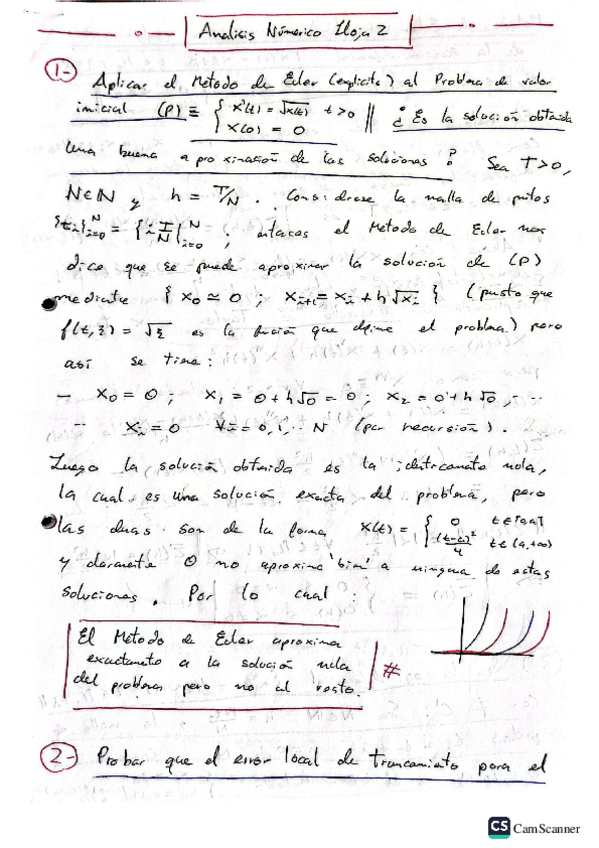 Analisis Númerico Hoja 2
1- Aplicar el Metodo de Euler (explicito) al Problema de valor
inicial (P) ≡ { x'(t) = √x(t) t>0 // ¿Es la solución obtenida
x(0) = 0
una buena aproximación de las soluciones? Sea T>0,
N∈ℕ y h = T/N. Considrese la malla de putos
{t_i}_{i=0}^N = {i T/N}_{i=0}^N, entonces el Metodo de Euler nos
dice que se puede aproximar la solución de (P)
mediante { x_0 ≃ 0 ; x_{i+1} = x_i + h√x_i } (puesto que
f(t,ξ) = √ξ es la función que define el problema) pero
así se tiene:
- x_0 = 0 ; x_1 = 0 + h√0 = 0 ; x_2 = 0 + h√0, ...
... x_i = 0 ∀i = 0,1,... N (por recursión).
Luego la solución obtenida es la identicamente nula,
la cual es una solución exacta del problema, pero
las demas son de la forma x(t) = { 0 t∈[0,a]
(t-a)²/4 t∈(a,+∞)
y claramente 0 no aproxima 'bien' a ninguna de estas
soluciones. Por lo cual:
El Metodo de Euler aproxima
exactamente a la solución nula
del problema pero no al resto. #
2- Probar que el error local de truncamiento para el
CS CamScanner